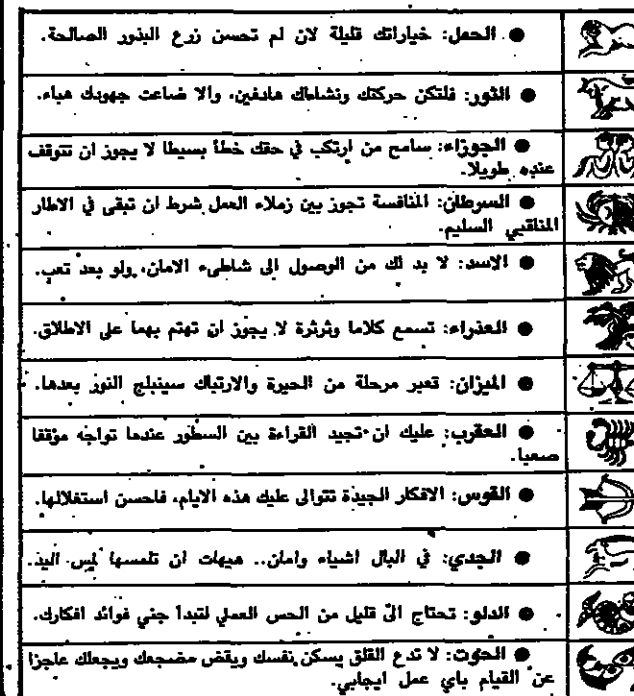 ● الحمل: خياراتك قليلة لان لم تحسن زرع البذور الصالحة.
● الثور: فلتكن حركتك ونشاطك هادفين، والا ضاعت جهودك هباء.
● الجوزاء: سامح من ارتكب في حقك خطأ بسيطا لا يجوز ان تتوقف
عنده طويلا.
● السرطان: المنافسة تجوز بين زملاء العمل شرط ان تبقى في الاطار
المناقبي السليم.
● الاسد: لا بد لك من الوصول الى شاطىء الامان، ولو بعد تعب.
● العذراء: تسمع كلاما وثرثرة لا يجوز ان تهتم بهما على الاطلاق.
● الميزان: تعبر مرحلة من الحيرة والارتباك سينبلج النور بعدها.
● العقرب: عليك ان تجيد القراءة بين السطور عندما تواجه مؤقفا
صعبا.
● القوس: الافكار الجيدة تتوالى عليك هذه الايام، فاحسن استغلالها.
● الجدي: في البال اشياء وامان.. هيهات ان تلمسها لمس اليد.
● الدلو: تحتاج الى قليل من الحس العملي لتبدأ جني فوائد افكارك.
● الحوت: لا تدع القلق يسكن نفسك ويقض مضجعك ويجعلك عاجزا
عن القيام باي عمل ايجابي.